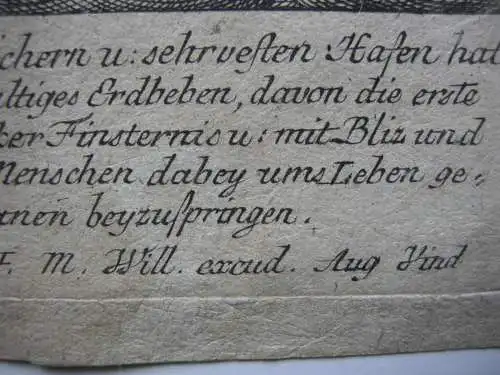 ichern u: sehr vesten Hafen hat
altiges Erdbeben, davon die erste
ker Finsternis u: mit Bliz und
Menschen dabey ums Leben ge-
nen beyzuspringen.
F. M. Will. excud. Aug Vind